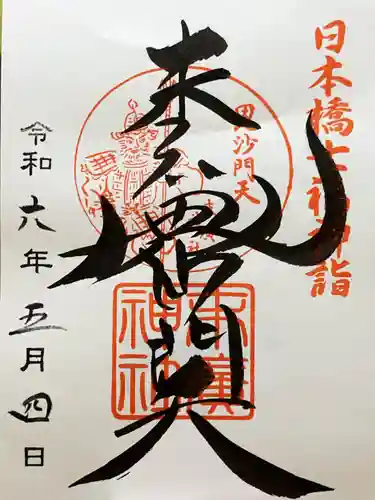 日本橋七福神詣
毘沙門天
奉拝
末廣神社
令和六年五月四日